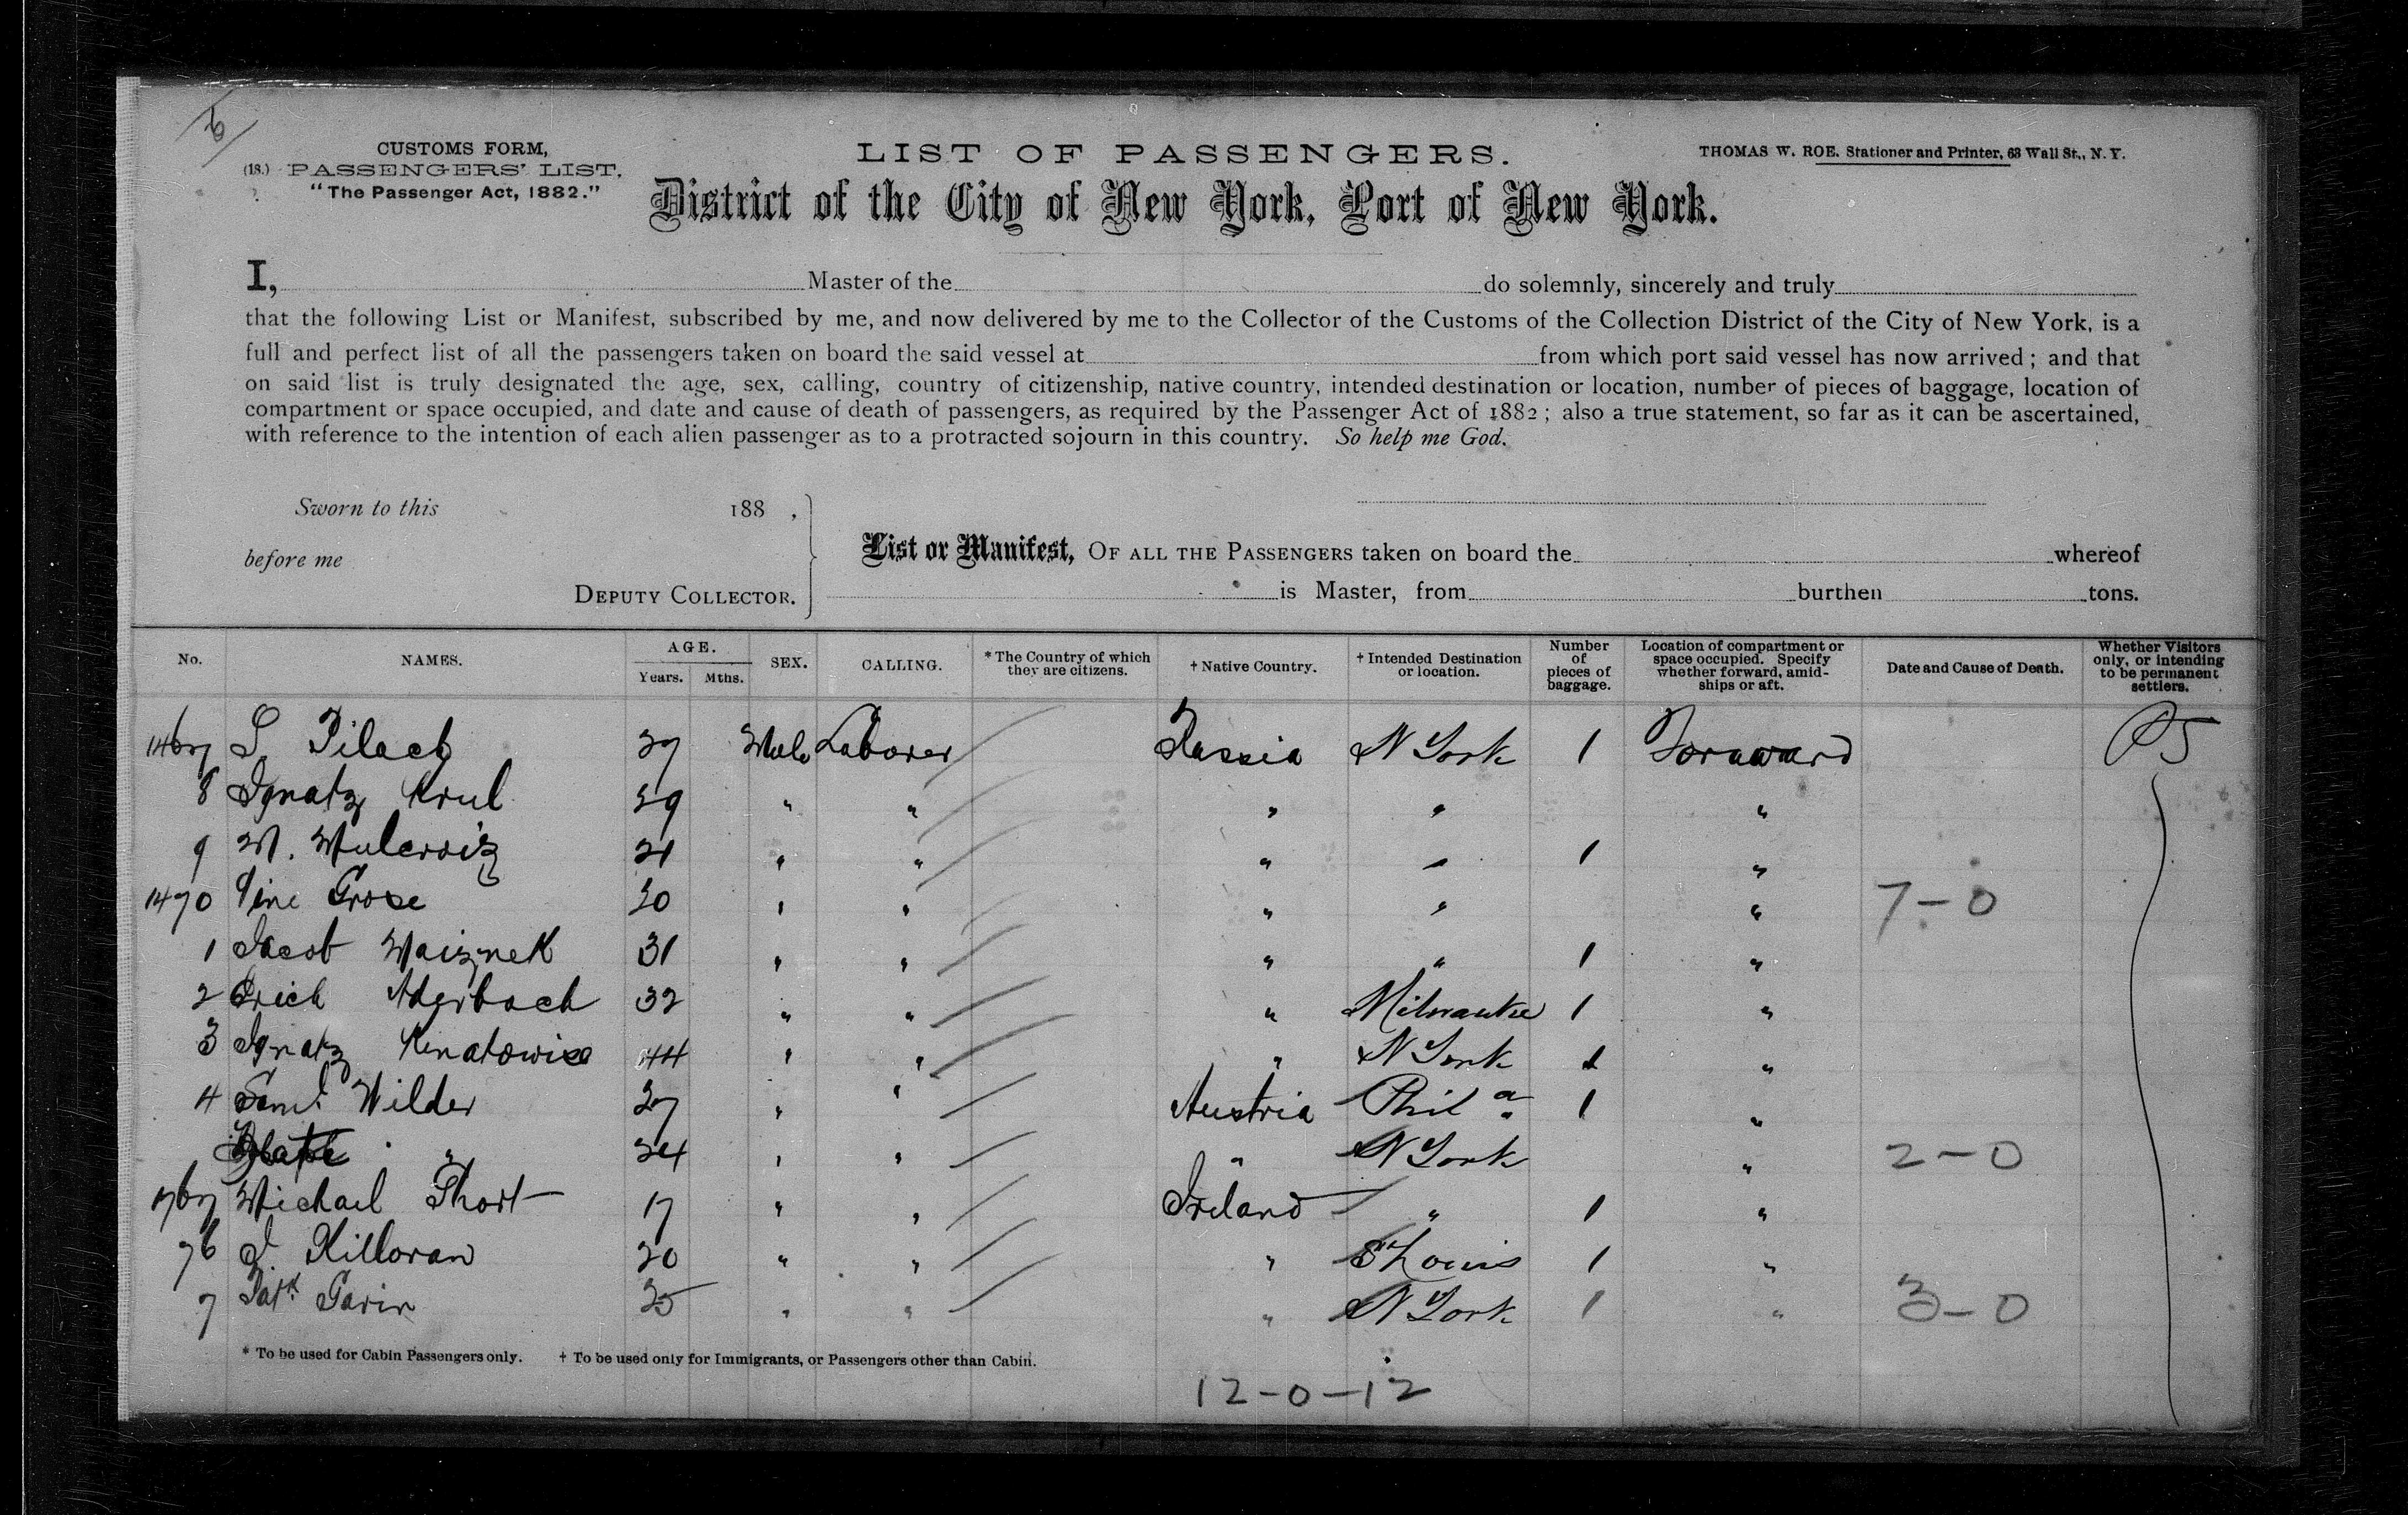 6
CUSTOMS FORM,
(18.) PASSENGERS' LIST.
"The Passenger Act, 1882."
LIST OF PASSENGERS.
THOMAS W. ROE, Stationer and Printer, 63 Wall St., N. Y.
District of the City of New York, Port of New York.
I, Master of the do solemnly, sincerely and truly
that the following List or Manifest, subscribed by me, and now delivered by me to the Collector of the Customs of the Collection District of the City of New York, is a
full and perfect list of all the passengers taken on board the said vessel at from which port said vessel has now arrived; and that
on said list is truly designated the age, sex, calling, country of citizenship, native country, intended destination or location, number of pieces of baggage, location of
compartment or space occupied, and date and cause of death of passengers, as required by the Passenger Act of 1882; also a true statement, so far as it can be ascertained,
with reference to the intention of each alien passenger as to a protracted sojourn in this country. So help me God.
Sworn to this 188 ,
before me
DEPUTY COLLECTOR.
List or Manifest, OF ALL THE PASSENGERS taken on board the whereof
is Master, from burthen tons.
No. NAMES. AGE. Years. Mths. SEX. CALLING. * The Country of which they are citizens. † Native Country. † Intended Destination or location. Number of pieces of baggage. Location of compartment or space occupied. Specify whether forward, amidships or aft. Date and Cause of Death. Whether Visitors only, or intending to be permanent settlers.
1467 S. Pilach 27 Male Laborer Russia N York 1 Foraward PS
8 Ignatz Krul 29 " " " " "
9 M. " " " " 1 "
1470 Vine Grose 30 " " " " " 7-0
1 Jacob Waiznek 31 " " " " 1 "
2 Erich 32 " " " Milwaukee 1 "
3 Ignatz Kenatowise 44 " " " N York 1 "
4 Saml Wilder 27 " " Austria Phil a 1 "
" 24 " " " N York " 2-0
1767 Michael Short 17 " " Ireland " 1 "
76 J. Killoran 20 " " " St Louis 1 "
7 Patk Gavin 25 " " " N York 1 " 3-0
* To be used for Cabin Passengers only. † To be used only for Immigrants, or Passengers other than Cabin.
12-0-12